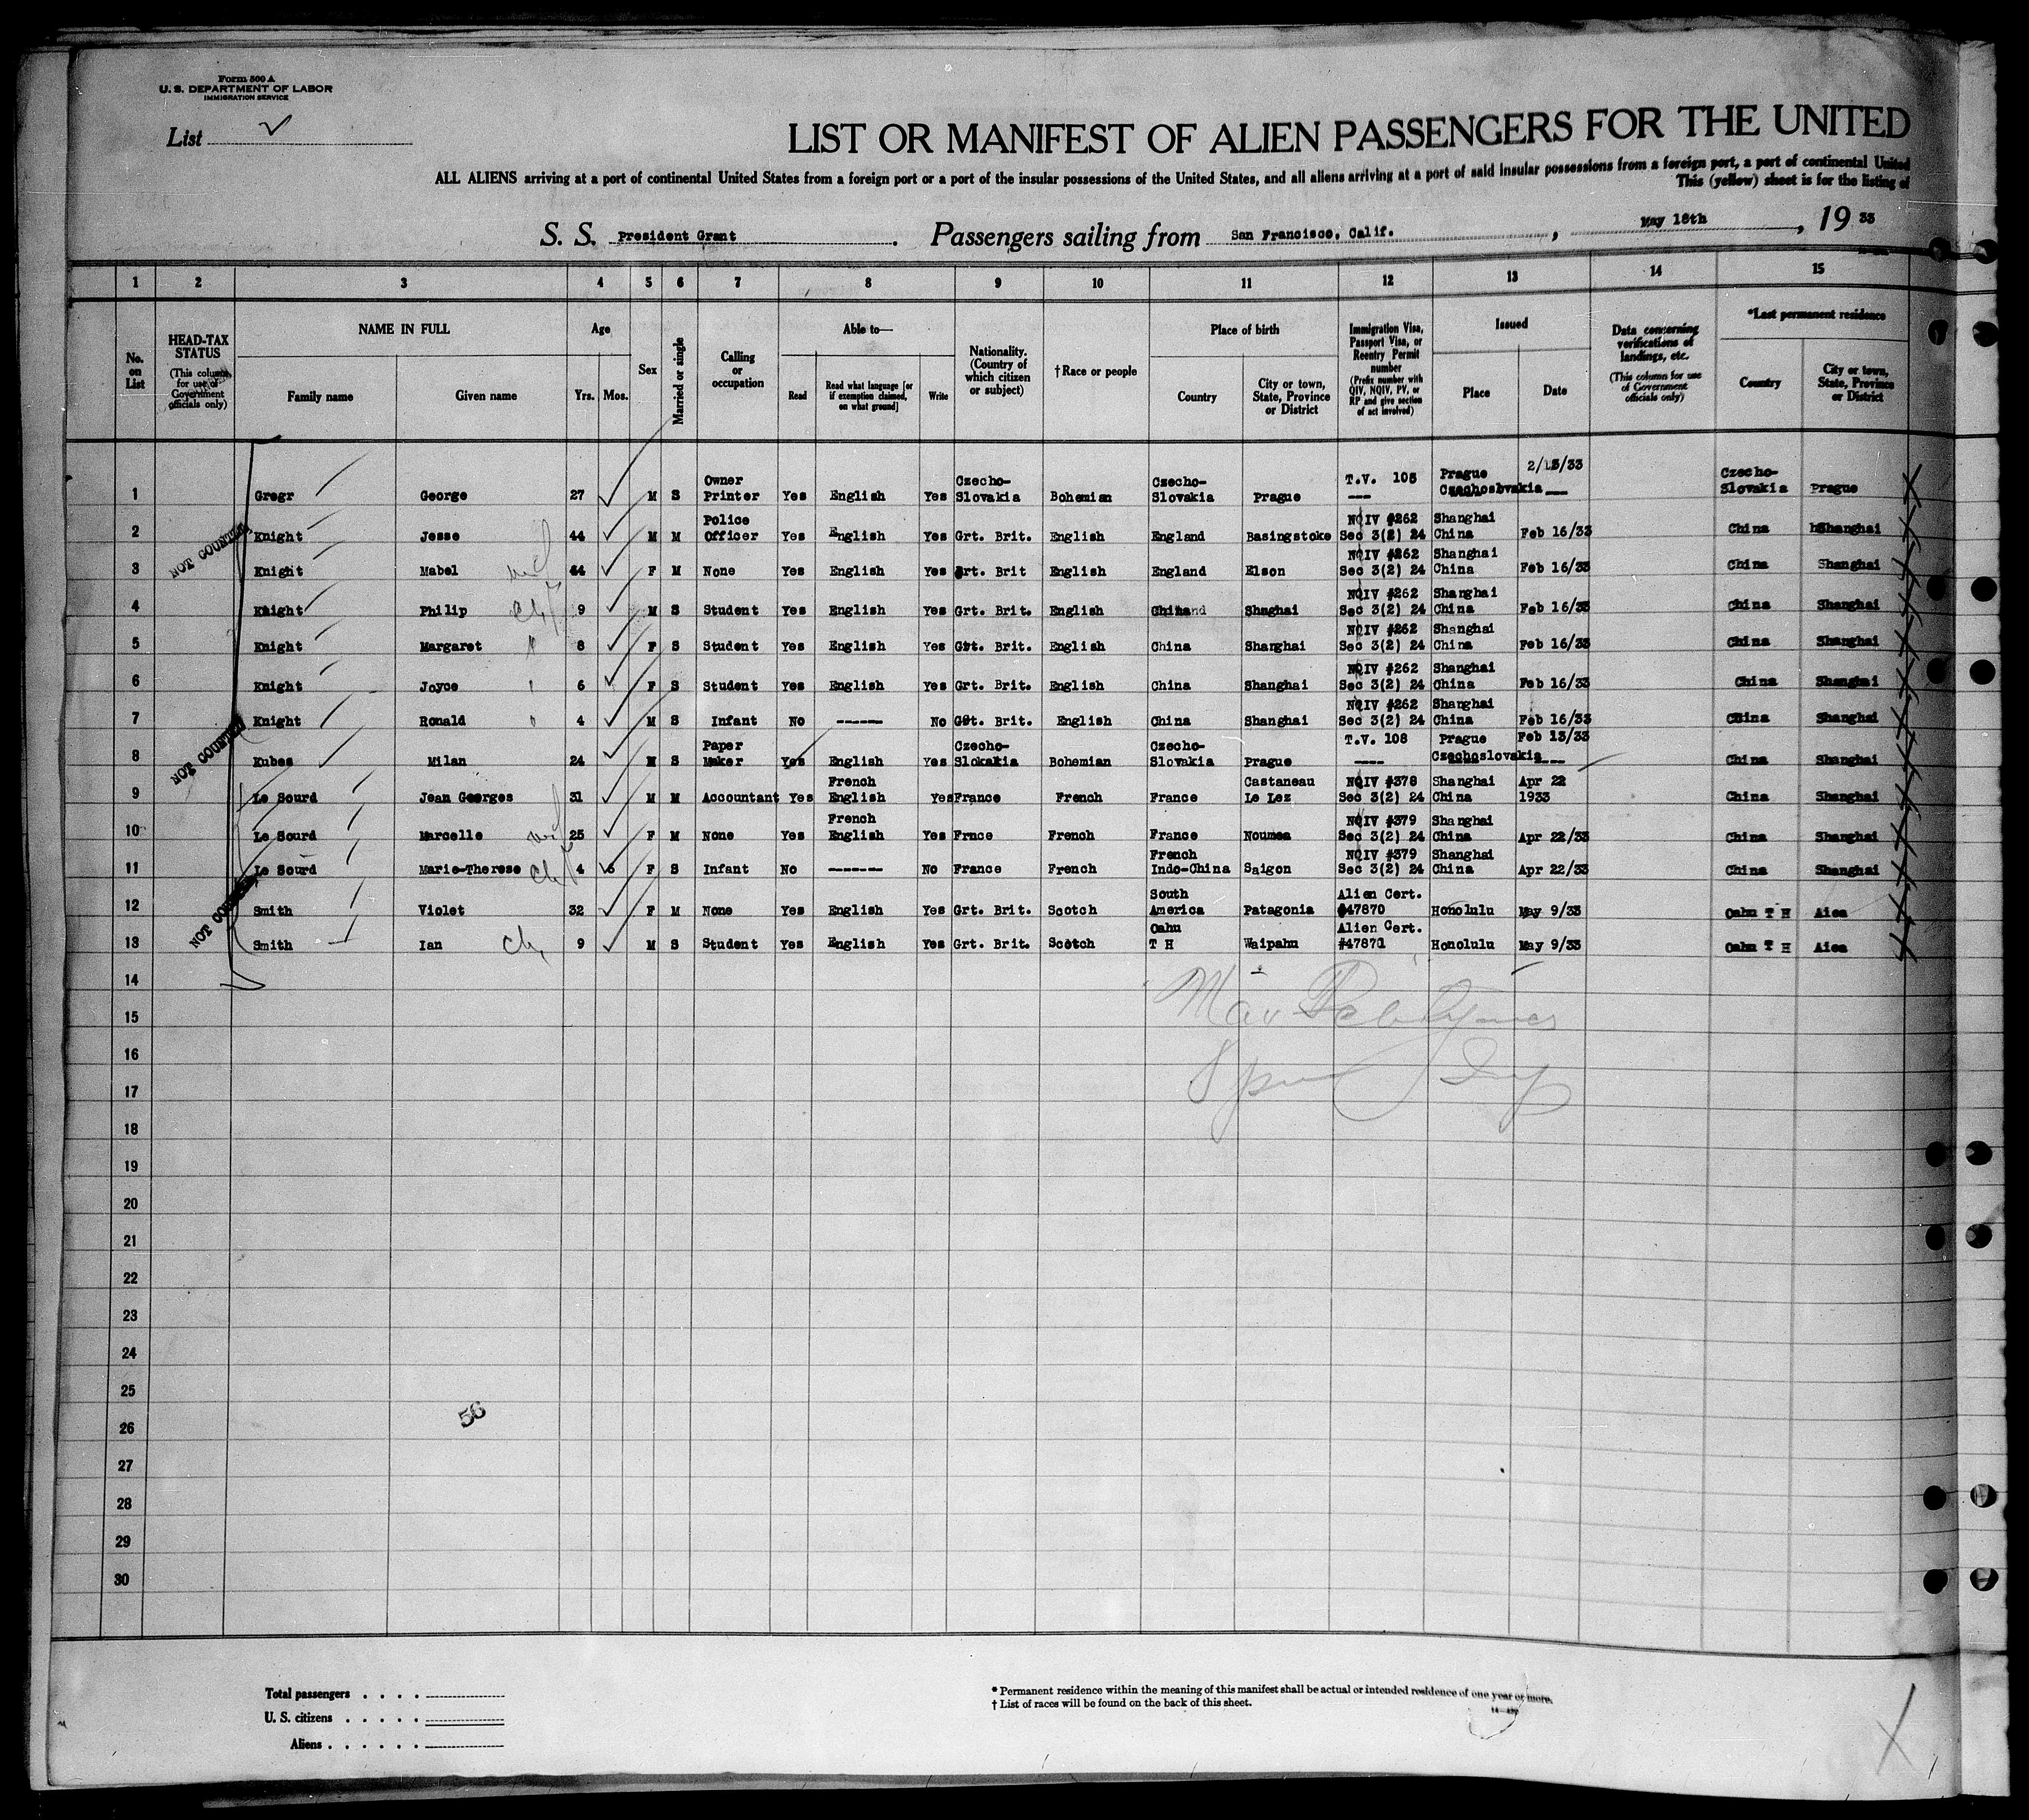 Form 500 A
U. S. DEPARTMENT OF LABOR
IMMIGRATION SERVICE
List
LIST OR MANIFEST OF ALIEN PASSENGERS FOR THE UNITED
ALL ALIENS arriving at a port of continental United States from a foreign port or a port of the insular possessions of the United States, and all aliens arriving at a port of said insular possessions from a foreign port, a port of continental United
This (yellow) sheet is for the listing of
S. S. President Grant. Passengers sailing from San Francisco, Calif., May 18th, 19 33
1 2 3 4 5 6 7 8 9 10 11 12 13 14 15
No. on List
HEAD-TAX STATUS (This column for use of Government officials only)
NAME IN FULL Family name Given name
Age Yrs. Mos.
Sex
Married or single
Calling or occupation
Able to— Read Read what language [or if exemption claimed, on what ground] Write
Nationality. (Country of which citizen or subject)
†Race or people
Place of birth Country City or town, State, Province or District
Immigration Visa, Passport Visa, or Reentry Permit number (Prefix number with QIV, NQIV, PV, or RP and give section of act involved)
Issued Place Date
Data concerning verifications of landings, etc. (This column for use of Government officials only)
*Last permanent residence Country City or town, State, Province or District
1 Gregr George 27 M S Owner Printer Yes English Yes Czecho-Slovakia Bohemian Czecho-Slovakia Prague T.V. 105 ---- Prague Czechoslovakia 2/13/33 Czecho-Slovakia Prague
2 Knight Jesse 44 M M Police Officer Yes English Yes Grt. Brit. English England Basingstoke NQIV #262 Sec 3(2) 24 Shanghai China Feb 16/33 China Shanghai
3 Knight Mabel 44 F M None Yes English Yes Grt. Brit English England Elson NQIV #262 Sec 3(2) 24 Shanghai China Feb 16/33 China Shanghai
4 Knight Philip 9 M S Student Yes English Yes Grt. Brit. English China Shaghai NQIV #262 Sec 3(2) 24 Shanghai China Feb 16/33 China Shanghai
5 Knight Margaret 8 F S Student Yes English Yes Grt. Brit. English China Shanghai NQIV #262 Sec 3(2) 24 Shanghai China Feb 16/33 China Shanghai
6 Knight Joyce 6 F S Student Yes English Yes Grt. Brit. English China Shanghai NQIV #262 Sec 3(2) 24 Shanghai China Feb 16/33 China Shanghai
7 Knight Ronald 4 M S Infant No ------ No Grt. Brit. English China Shanghai NQIV #262 Sec 3(2) 24 Shanghai China Feb 16/33 China Shanghai
8 Kubes Milan 24 M S Paper Maker Yes English Yes Czecho-Slokakia Bohemian Czecho-Slovakia Prague T.V. 108 ---- Prague Czechoslovakia Feb 13/33 China Shanghai
9 Le Sourd Jean Georges 31 M M Accountant Yes French English Yes France French France Castaneau Le Lez NQIV #378 Sec 3(2) 24 Shanghai China Apr 22 1933 China Shanghai
10 Le Sourd Marcelle 25 F M None Yes French English Yes Frnce French France Noumea NQIV #379 Sec 3(2) 24 Shanghai China Apr 22/33 China Shanghai
11 Le Sourd Marie-Therese 4 6 F S Infant No ------ No France French French Indo-China Saigon NQIV #379 Sec 3(2) 24 Shanghai China Apr 22/33 China Shanghai
12 Smith Violet 32 F M None Yes English Yes Grt. Brit. Scotch South America Patagonia Alien Cert. #47870 Honolulu May 9/33 Oahu T H Aiea
13 Smith Ian 9 M S Student Yes English Yes Grt. Brit. Scotch Oahu T H Waipahu Alien Cert. #47871 Honolulu May 9/33 Oahu T H Aiea
NOT COUNTED
NOT COUNTED
NOT COUNTED
14
15
16
17
18
19
20
21
22
23
24
25
26
27
28
29
30
56
Total passengers
U. S. citizens
Aliens
* Permanent residence within the meaning of this manifest shall be actual or intended residence of one year or more.
† List of races will be found on the back of this sheet.